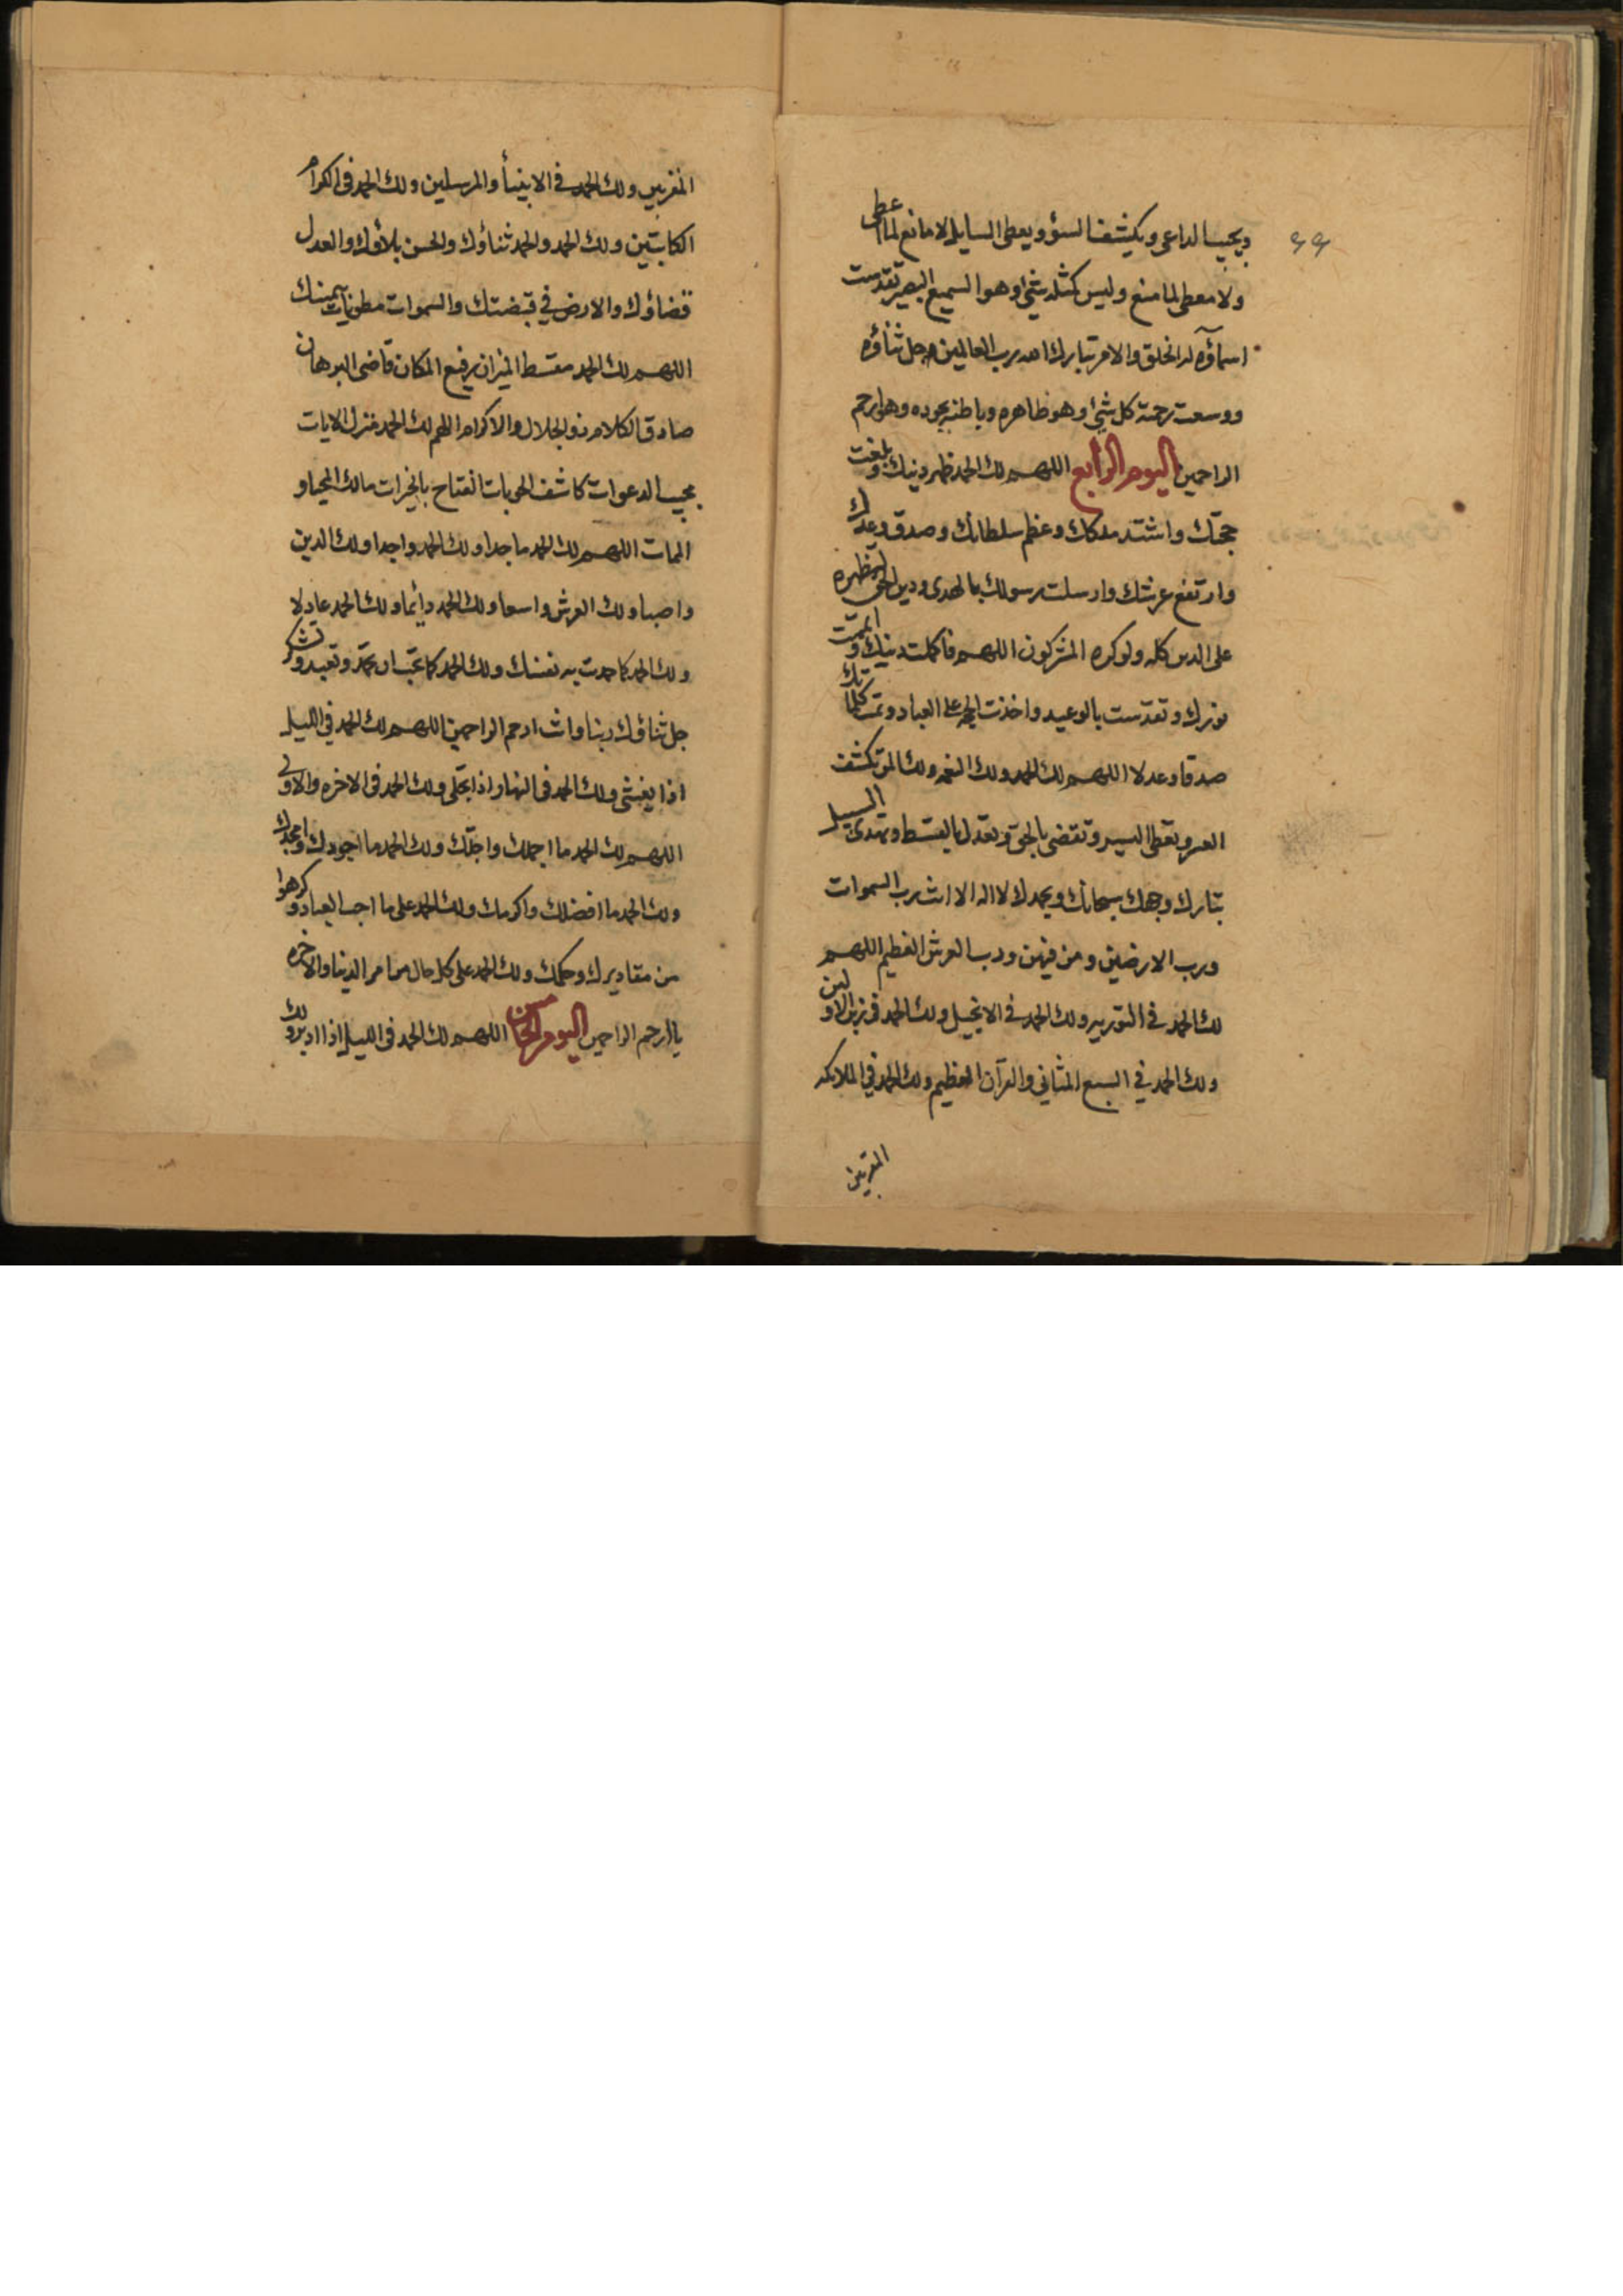 ٩٩
ويجيب الداعي ويكشف السؤ ويعطى السايل لا مانع لما اعطى
ولا معطى لما منع وليس كمثله شئ وهو السميع البصير تقدست
اسماؤه له الخلق والامر تبارك الله رب العالمين جل ثناؤه
ووسعت رحمة كل شئ وهو ظاهره وباطنه بجوده وهو ارحم
الراحمين اليوم الرابع اللهم لك الحمد ظهر دينك وبلغت
حجتك واشتد ملكك وعظم سلطانك وصدق وعدك
وارتفع عرشك وارسلت رسولك بالهدى ودين الحق لتظهره
على الدين كله ولو كره المشركون اللهم فاكملت دينك واتممت
نورك وتقدست بالوعيد واخذت الحجه على العباد وتمت كلماتك
صدقا وعدلا اللهم لك الحمد ولك النعمه ولك المن تكشف
العسر وتعطى اليسر وتقضى بالحق وتعدل بالقسط وتهدى السبيل
تبارك وجهك سبحانك وبحمدك لا اله الا انت رب السموات
ورب الارضين ومن فيهن ورب العرش العظيم اللهم
لك الحمد في التورية ولك الحمد في الانجيل ولك الحمد في زبر الاولين
ولك الحمد في السبع المثاني والقرآن العظيم ولك الحمد في الملائكه
المقربين
المقربين ولك الحمد في الانبيأ والمرسلين ولك الحمد في الكرام
الكاتبين ولك الحمد والحمد ثناؤك والحسن بلاؤك والعدل
قضاؤك والارض في قبضتك والسموات مطويات بيمينك
اللهم لك الحمد مقسط الميزان رفيع المكان قاضى البرهان
صادق الكلام ذو الجلال والاكرام اللهم لك الحمد منزل الايات
مجيب الدعوات كاشف الحوبات الفتاح بالخيرات مالك المحيا و
الممات اللهم لك الحمد ماجدا ولك الحمد واحدا ولك الدين
واصبا ولك العرش واسعا ولك الحمد دائما ولك الحمد عادلا
ولك الحمد كما حمدت به نفسك ولك الحمد كما تحب ان تحمد وتعبد وتشكر
جل ثناؤك ربنا وانت ارحم الراحمين اللهم لك الحمد في الليل
اذا يغشى ولك الحمد في النهار اذا تجلى ولك الحمد في الاخره والاولى
اللهم لك الحمد ما احملك واجلك ولك الحمد ما اجودك وامجدك
ولك الحمد ما افضلك واكرمك ولك الحمد على ما احب العباد وكرهوا
من مقاديرك وحكمك ولك الحمد على كل حال من امر الدنيا والاخره
يا ارحم الراحمين اليوم الخامس اللهم لك الحمد في الليل اذا ادبر ولك